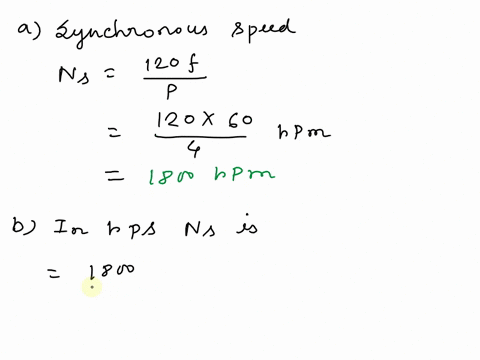 a) Synchronous speed
Ns = 120 f / P
= 120 x 60 / 4 rpm
= 1800 rpm
b) In rps Ns is
= 1800